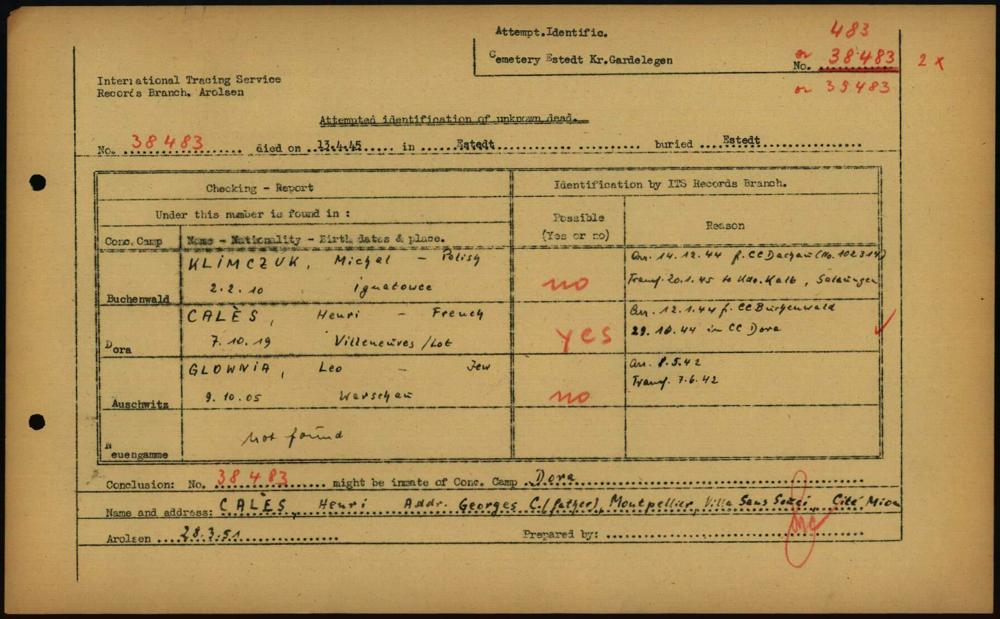 Attempt.Identific.
Cemetery Estedt Kr.Gardelegen
483
No. or 38483 2 x
or 35483
International Tracing Service
Records Branch, Arolsen
Attempted identification of unknown dead.
No. 38483 died on 13.4.45 in Estedt buried Estedt
Checking - Report
Identification by ITS Records Branch.
Under this number is found in :
Possible
(Yes or no)
Reason
Conc. Camp
Name - Nationality - Birth dates & place.
Buchenwald
KLIMCZUK, Michal - Polish
2.2.10 Ignatowce
no
Arr. 14.12.44 f. CC Dachau (No. 102314)
Transf. 20.1.45 to Kdo. Kalb, Salzungen
Dora
CALÈS, Henri - French
7.10.19 Villeneuves/Lot
yes
Arr. 12.1.44 f. CC Buchenwald
29.10.44 in CC Dora
Auschwitz
GLOWNIA, Leo - Jew
9.10.05 Warschau
no
Arr. 8.5.42
Transf. 7.6.42
Neuengamme
not found
Conclusion: No. 38483 might be inmate of Conc. Camp Dora
Name and address: CALÈS, Henri Addr. Georges C. (father), Montpellier, Villa Sans Cité Mion
Arolsen 28.3.51 Prepared by: